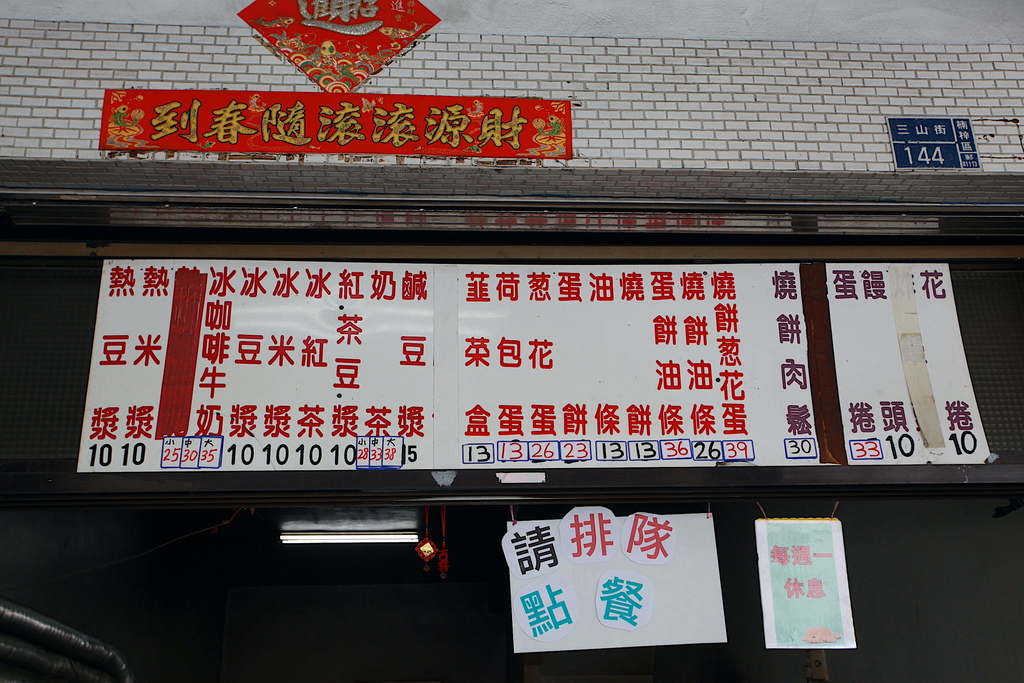 財源滾滾隨春到
三山街
144
楠梓區
熱豆漿 10
熱米漿 10
冰咖啡牛奶 小25 中30 大35
冰豆漿 10
冰米漿 10
冰紅茶 10
紅茶豆漿 10
奶茶 小28 中33 大38
鹹豆漿 15
韮菜盒 13
荷包蛋 13
葱花蛋 26
蛋餅 23
油條 13
燒餅 13
蛋餅油條 36
燒餅油條 26
燒餅葱花蛋 39
燒餅肉鬆 30
蛋捲 33
饅頭 10
花捲 10
請排隊
點餐
每週一
休息